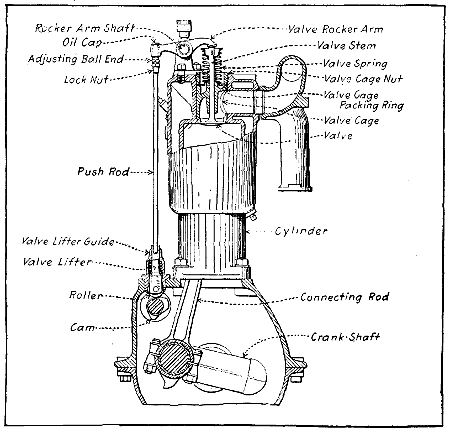 Rocker Arm Shaft
Oil Cap
Adjusting Ball End
Lock Nut
Push Rod
Valve Lifter Guide
Valve Lifter
Roller
Cam
Valve Rocker Arm
Valve Stem
Valve Spring
Valve Cage Nut
Valve Cage
Packing Ring
Valve Cage
Valve
Cylinder
Connecting Rod
Crank-Shaft